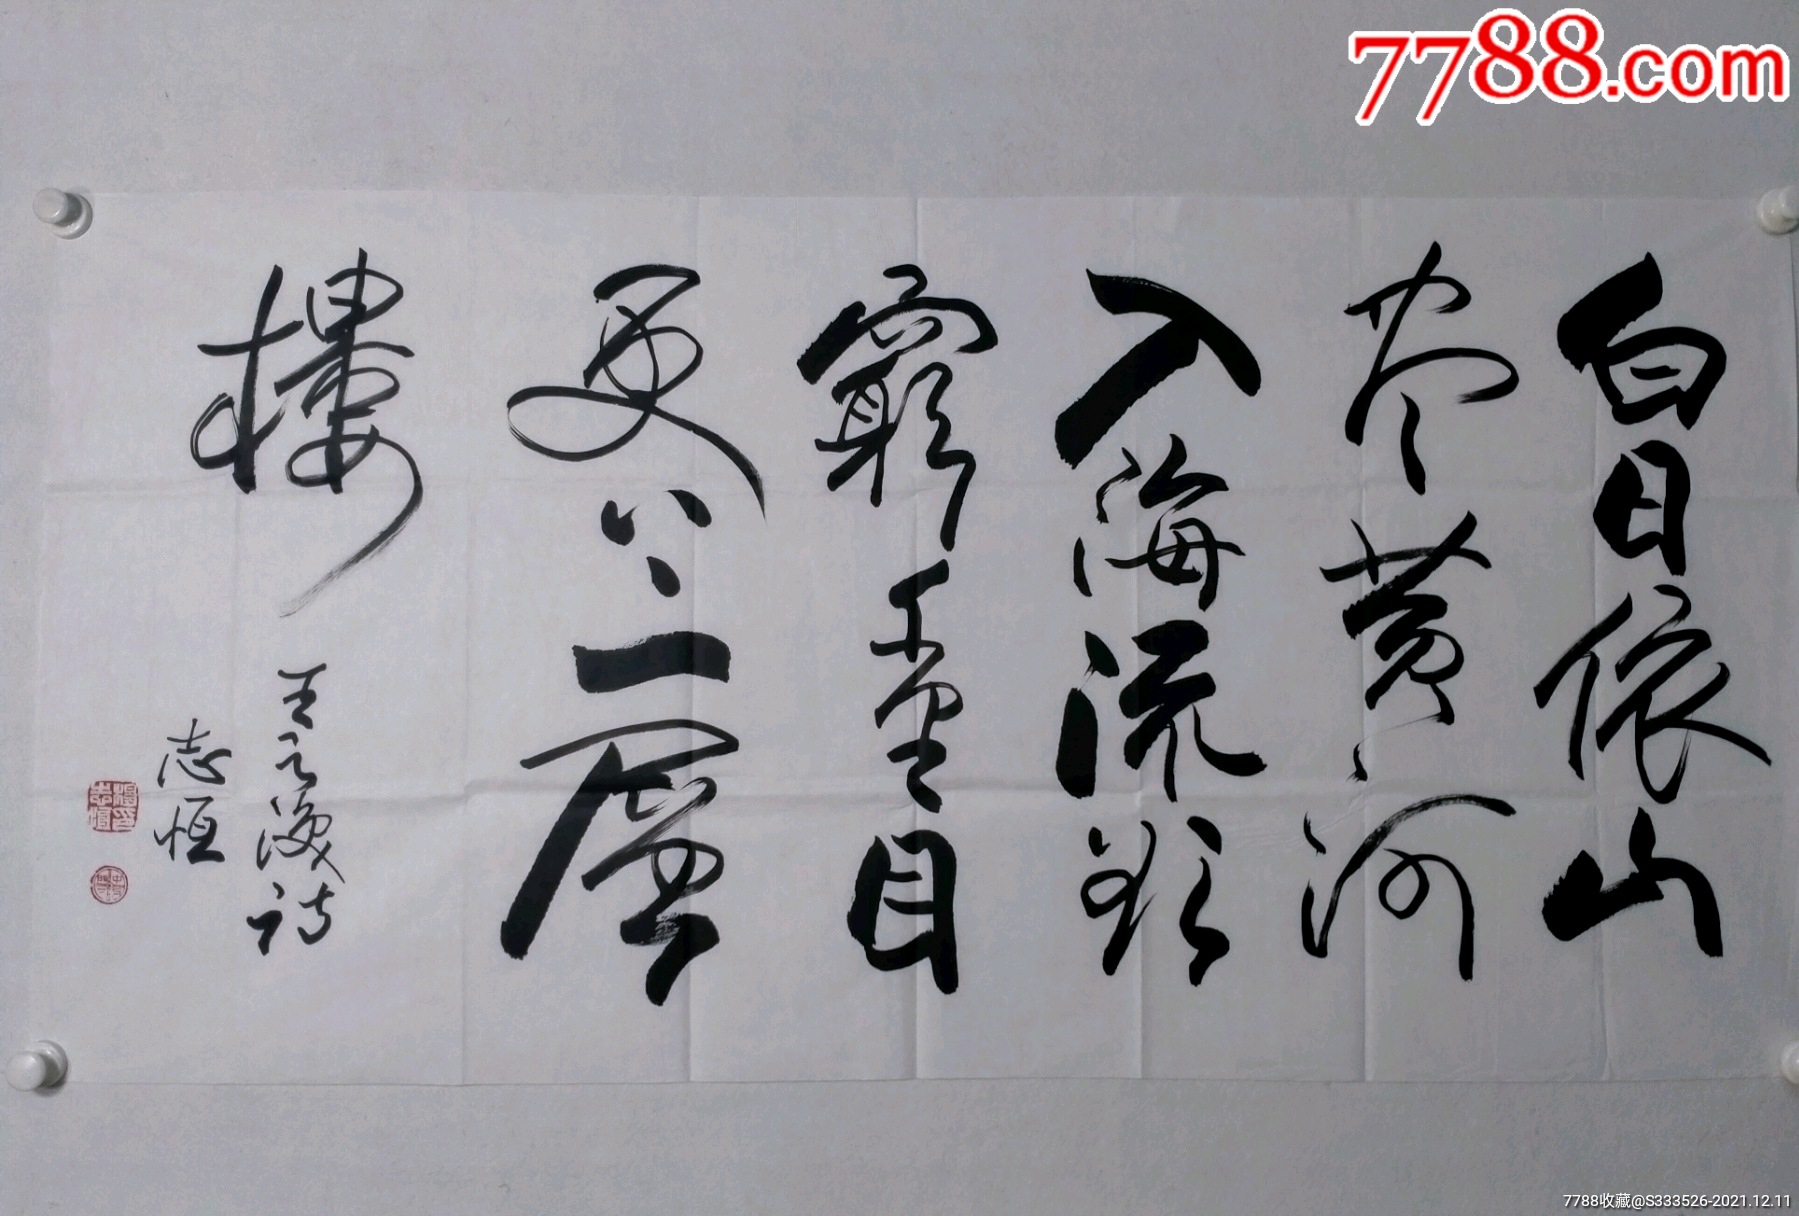 7788.com
白日依山
尽黄河
入海流欲
窮千里目
更上一層
樓
王之涣诗
志恒
7788收藏@S333526-2021.12.11